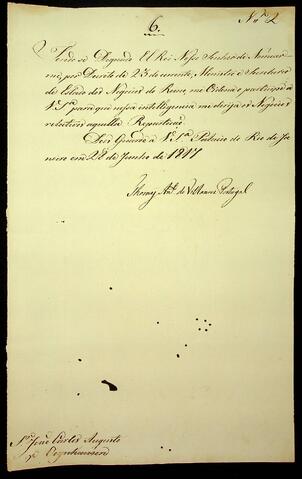 6.
N.º 2
Tendo se Dignado El Rei Nosso Senhor de Nomear
me, por Decreto de 23 do corrente, Ministro e Secretario
de Estado dos Negocios do Reino, me Ordena o participe a
V S.ª para que nessa intelligencia me dirija os Negocios
relativos aquella Repartição.
Deos Guarde a V. S.ª Palacio do Rio de Ja
neiro em 28 de Junho de 1817
Thomaz Ant.º de Villanova Portugal
S.r João Carlos Augusto
Oeynhausen